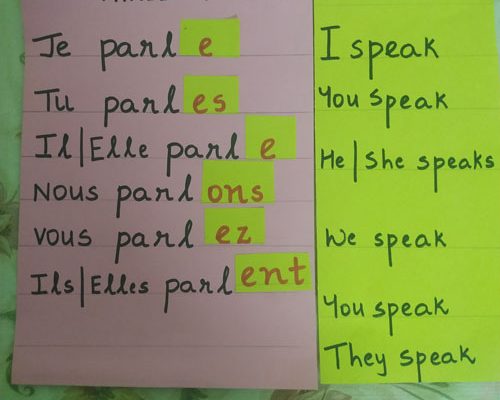 Je parl e
Tu parl es
Il|Elle parl e
Nous parl ons
Vous parl ez
Ils|Elles parl ent
I speak
You speak
He|She speaks
We speak
You speak
They speak